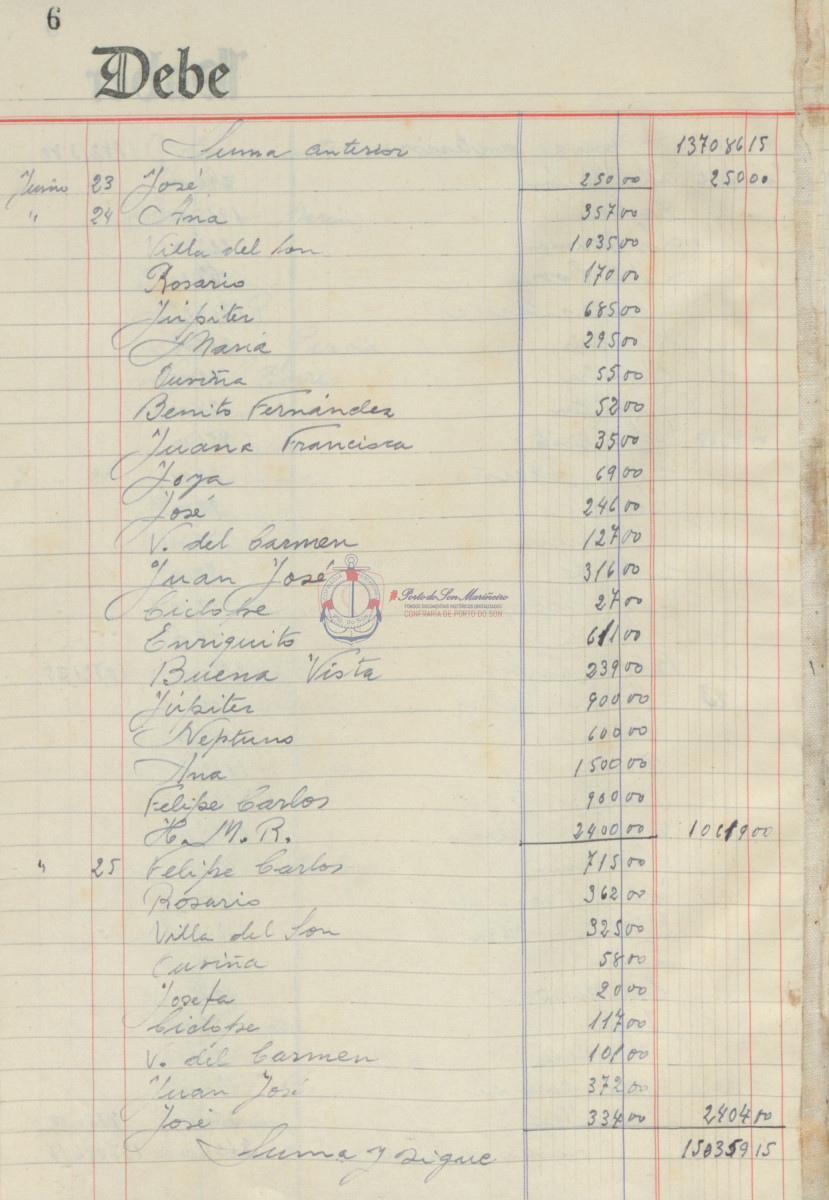 6
Debe
Suma anterior 137086 15
Junio 23 José 250 00 250 00
" 24 Ana 357 00
Villa del Son 1035 00
Rosario 170 00
Júpiter 685 00
María 295 00
Curiña 55 00
Benito Fernández 52 00
Juana Francisca 35 00
Joya 69 00
José 246 00
V. del Carmen 127 00
Juan José 316 00
Ciclope 27 00
Enriquito 611 00
Buena Vista 239 00
Júpiter 900 00
Neptuno 600 00
Ana 1500 00
Felipe Carlos 900 00
H. M. R. 2400 00 10619 00
" 25 Felipe Carlos 715 00
Rosario 362 00
Villa del Son 325 00
Curiña 58 00
Josefa 20 00
Ciclope 117 00
V. del Carmen 101 00
Juan José 372 00
José 334 00 2404 00
Suma y sigue 150359 15
#Porto do Son Mariñeiro
FONDOS DOCUMENTAIS HISTÓRICOS DIXITALIZADOS
CONFRARÍA DE PORTO DO SON